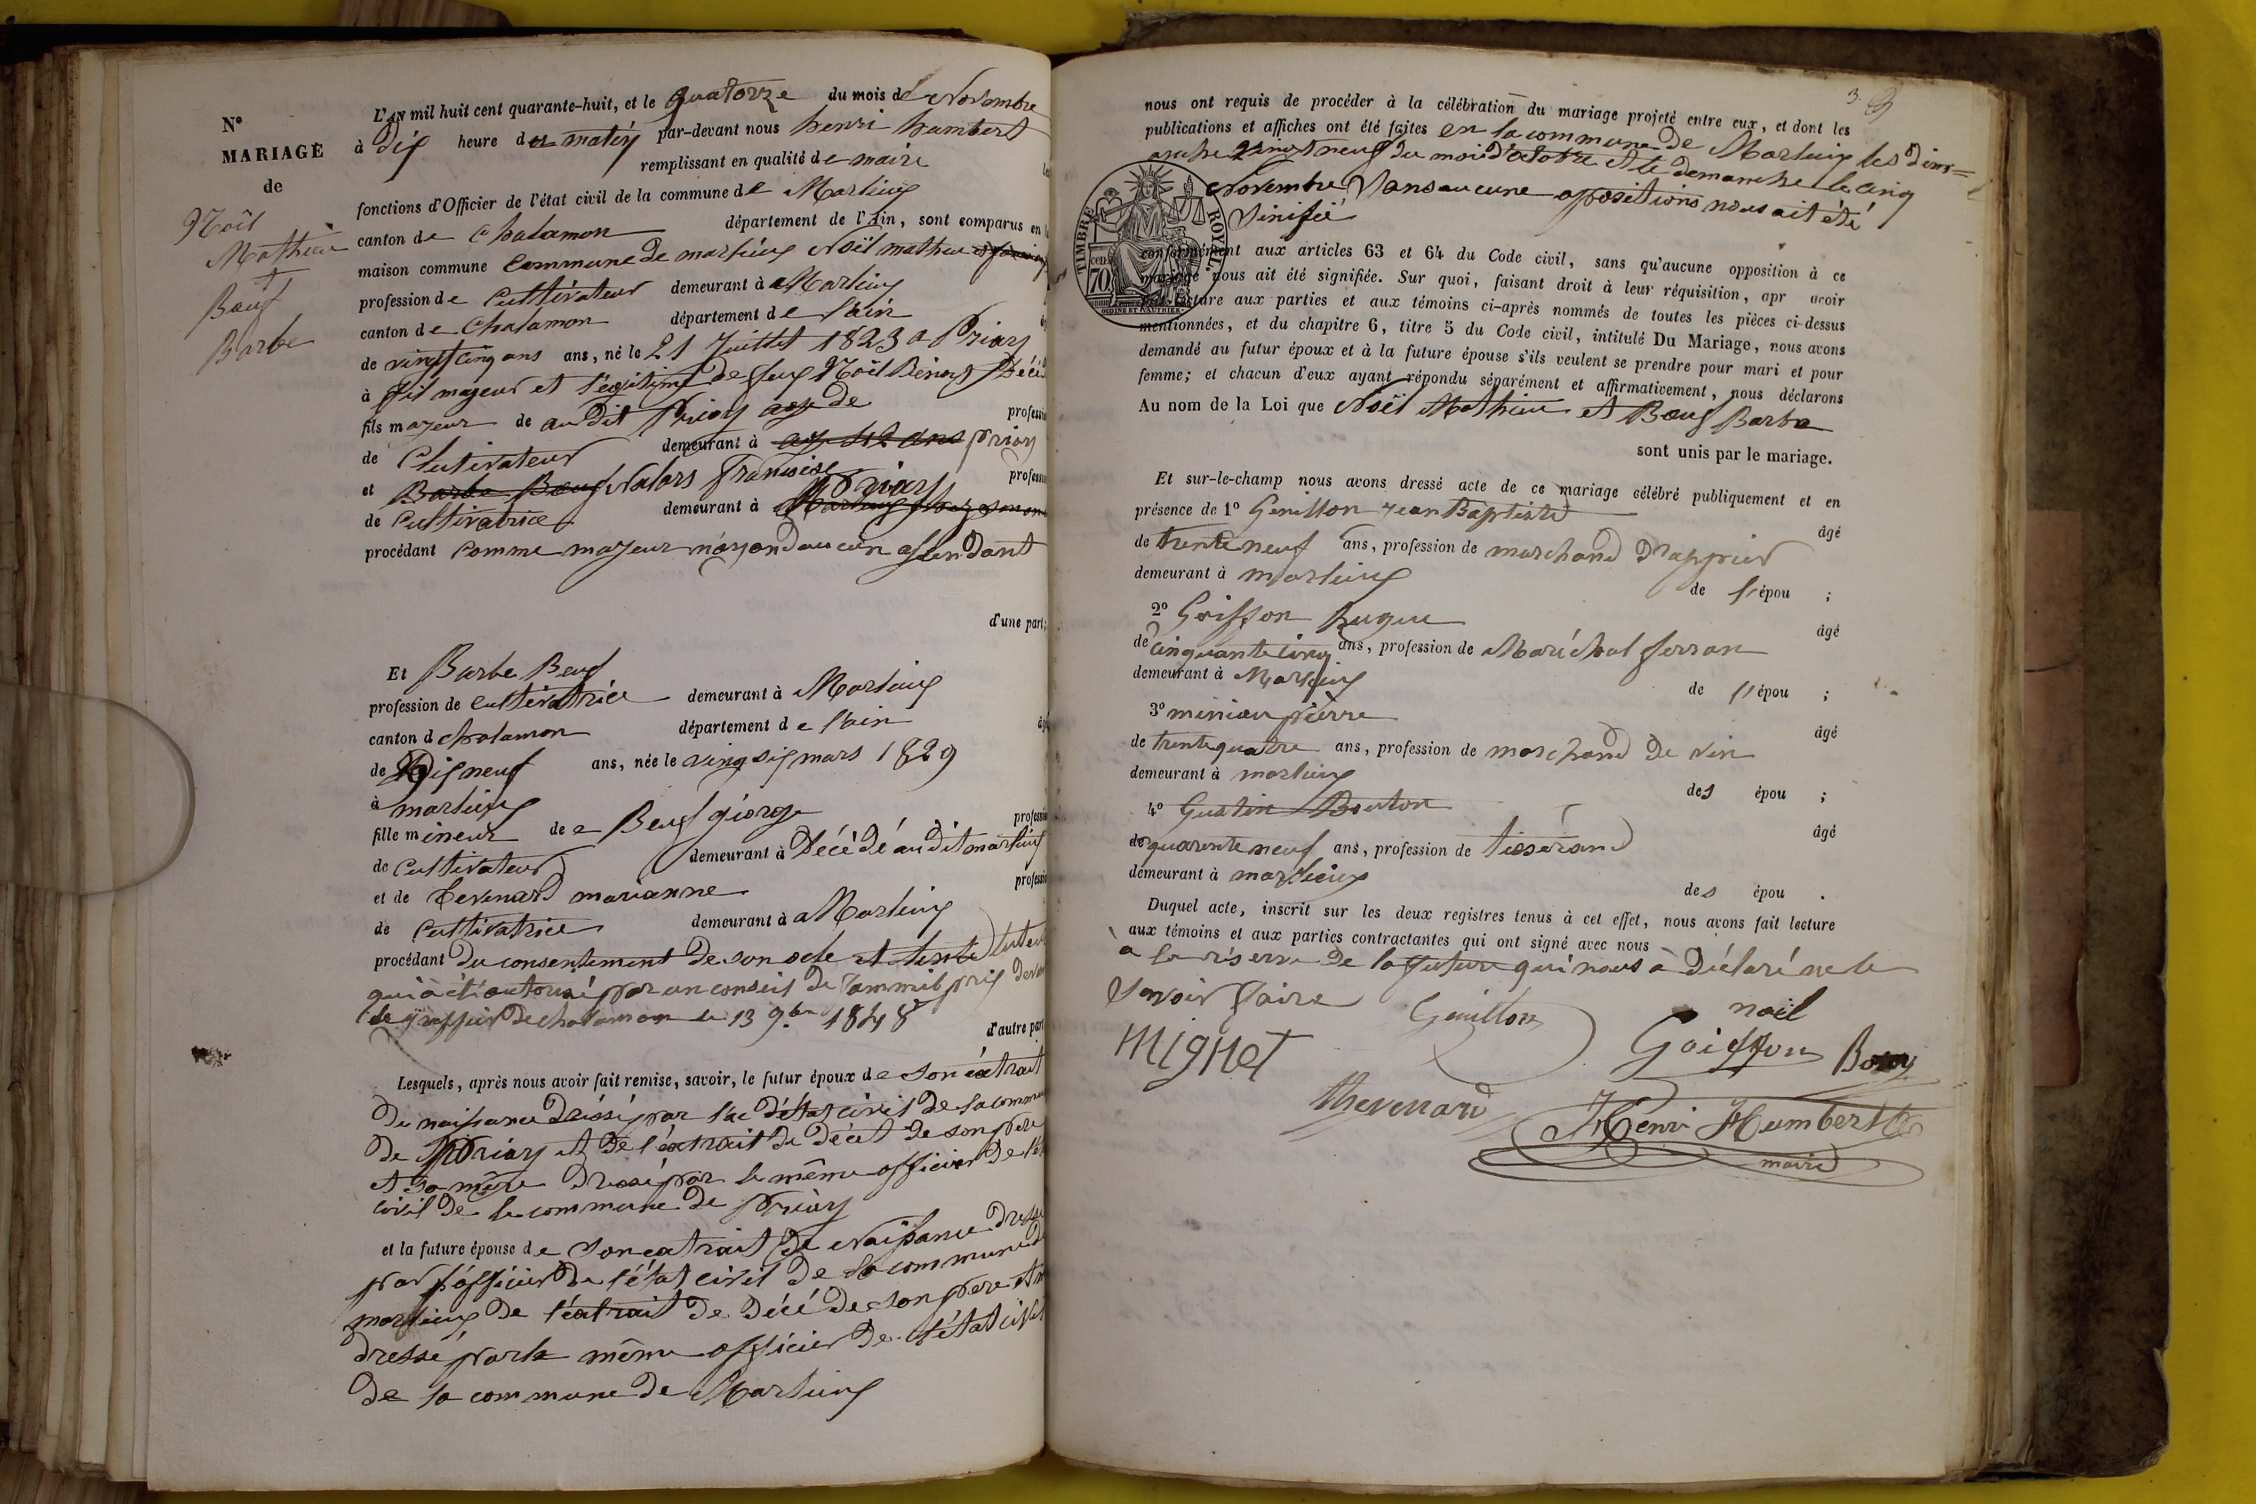 N°
MARIAGE
de
Noël
Mathieu
+
Bœuf
Barbe
L'AN mil huit cent quarante-huit, et le quatorze du mois de Novembre
à dix heure du matin par-devant nous henri humbert
remplissant en qualité de maire les
fonctions d'Officier de l'état civil de la commune de Marlieux
canton de Chalamon département de l'Ain, sont comparus en la
maison commune Commune de marlieux Noël mathieu
profession de Cultivateur demeurant à Marlieux
canton de Chalamon département de l'ain
de vingt cinq ans ans, né le 21 Juillet 1823 a Priay
à fils majeur et légitime de feu Noël Benoit Décé
fils majeur de au dit Priay age de profession
de Cultivateur demeurant à Priay
et Barbe Bœuf Nalars Francoise profession
de Cultivatrice demeurant à Priay
procédant Comme majeur n'ayand aucun assendant
d'une part;
Et Barbe Beuf
profession de cultivatrice demeurant à Marlieux
canton d chalamon département de l'ain
de Dix neuf ans, née le ving six mars 1829
à marlieux
fille mineur de e Beuf giorge profession
de Cultivateur demeurant à Décédé au dit marlieux
et de Tevenard marianne profession
de Cultivatrice demeurant à Marlieux
procédant du consentement de son tuteur
qui à été autorisé par un conseil de fammil pris devan
le greffier de chalamon le 13 9bre 1848
d'autre part
Lesquels, après nous avoir fait remise, savoir, le futur époux de son éxtrait
de naissance dréssé par l'état civil de la commune
de Priay et de l'éxtrait de décét de son père
et sa mère dressé par le même officier de l'ét
civil de la commune de Priay
et la future épouse de son extrait de Naissance dressé
par l'officier de l'état civil de la commune de
marlieux de l'éxtrait de décé de son père et
dressé par le même officier de l'état civil
de la commune de Marlieux
3.
nous ont requis de procéder à la célébration du mariage projeté entre eux, et dont les
publications et affiches ont été faites en la commune de Marlieux les dim=
anche neuf du mois d'octobre et le demanche le cinq
Novembre sans aucune oppositions nous ait été
sinifié
conformément aux articles 63 et 64 du Code civil, sans qu'aucune opposition à ce
mariage nous ait été signifiée. Sur quoi, faisant droit à leur réquisition, apr avoir
lecture aux parties et aux témoins ci-après nommés de toutes les pièces ci-dessus
mentionnées, et du chapitre 6, titre 5 du Code civil, intitulé Du Mariage, nous avons
demandé au futur époux et à la future épouse s'ils veulent se prendre pour mari et pour
femme; et chacun d'eux ayant répondu séparément et affirmativement, nous déclarons
Au nom de la Loi que Noël Mathieu et Bœuf Barbe
sont unis par le mariage.
TIMBRE ROYAL.
70
Et sur-le-champ nous avons dressé acte de ce mariage célébré publiquement et en
présence de 1° Genillon Jean Baptiste âgé
de trente neuf ans, profession de marchand Drappier
demeurant à marlieux de l'épou ;
2° Goiffon Hugue âgé
de cinquante cinq ans, profession de Maréchal ferran
demeurant à Marlieux de l'épou ;
3° miniau pierre âgé
de trente quatre ans, profession de marchand de vin
demeurant à marlieux des épou ;
4° Gustin Bouton âgé
de quarente neuf ans, profession de tisserand
demeurant à marlieux des épou .
Duquel acte, inscrit sur les deux registres tenus à cet effet, nous avons fait lecture
aux témoins et aux parties contractantes qui ont signé avec nous
a la réserve de la future qui nous à déclaré ne le
savoir faire
Genillon noël
mignet Goiffon
thevenard Henri Humbert
maire